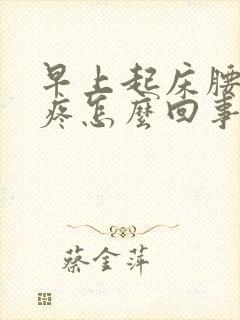 早上起床腰
疼怎麽回事
蔡金萍